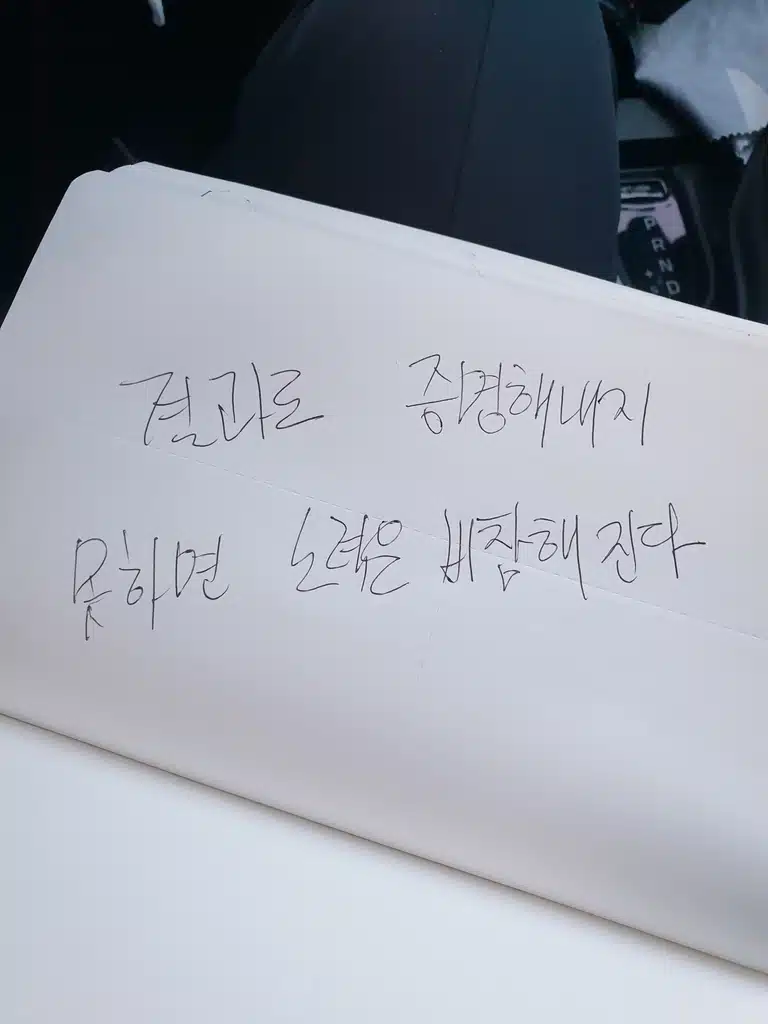 결과로 증명해내지
못하면 노력은 비참해진다
P
R
N
D
+